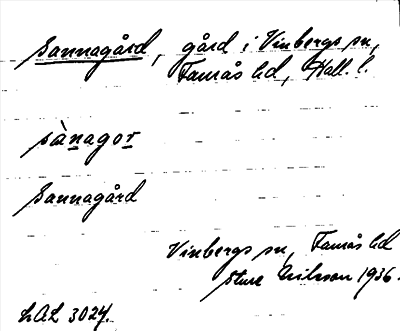 Sannagård, gård i Vinbergs sn,
Faurås hd, Hall. l.
sànagor
Sannagård
Vinbergs sn, Faurås hd
Sture Nilsson 1936.
L.A.L. 3024.